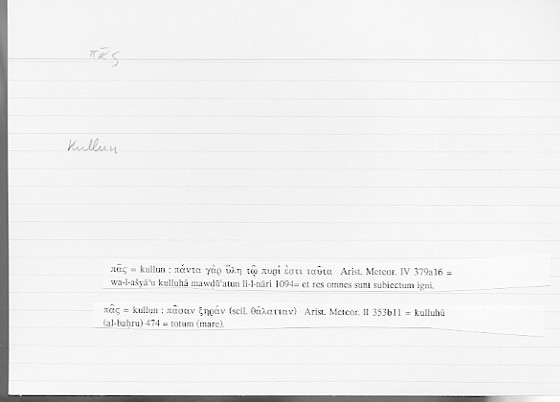 πᾶς
kullun
πᾶς = kullun : πάντα γὰρ ὕλη τῷ πυρί ἐστι ταῦτα Arist. Meteor. IV 379a16 =
wa-l-ašyā’u kulluhā mawḍū‘atun li-l-nāri 1094= et res omnes sunt subiectum igni.
πᾶς = kullun : πᾶσαν ξηράν (scil. θάλατταν) Arist. Meteor. II 353b11 = kulluhū
(al-baḥru) 474 = totum (mare).